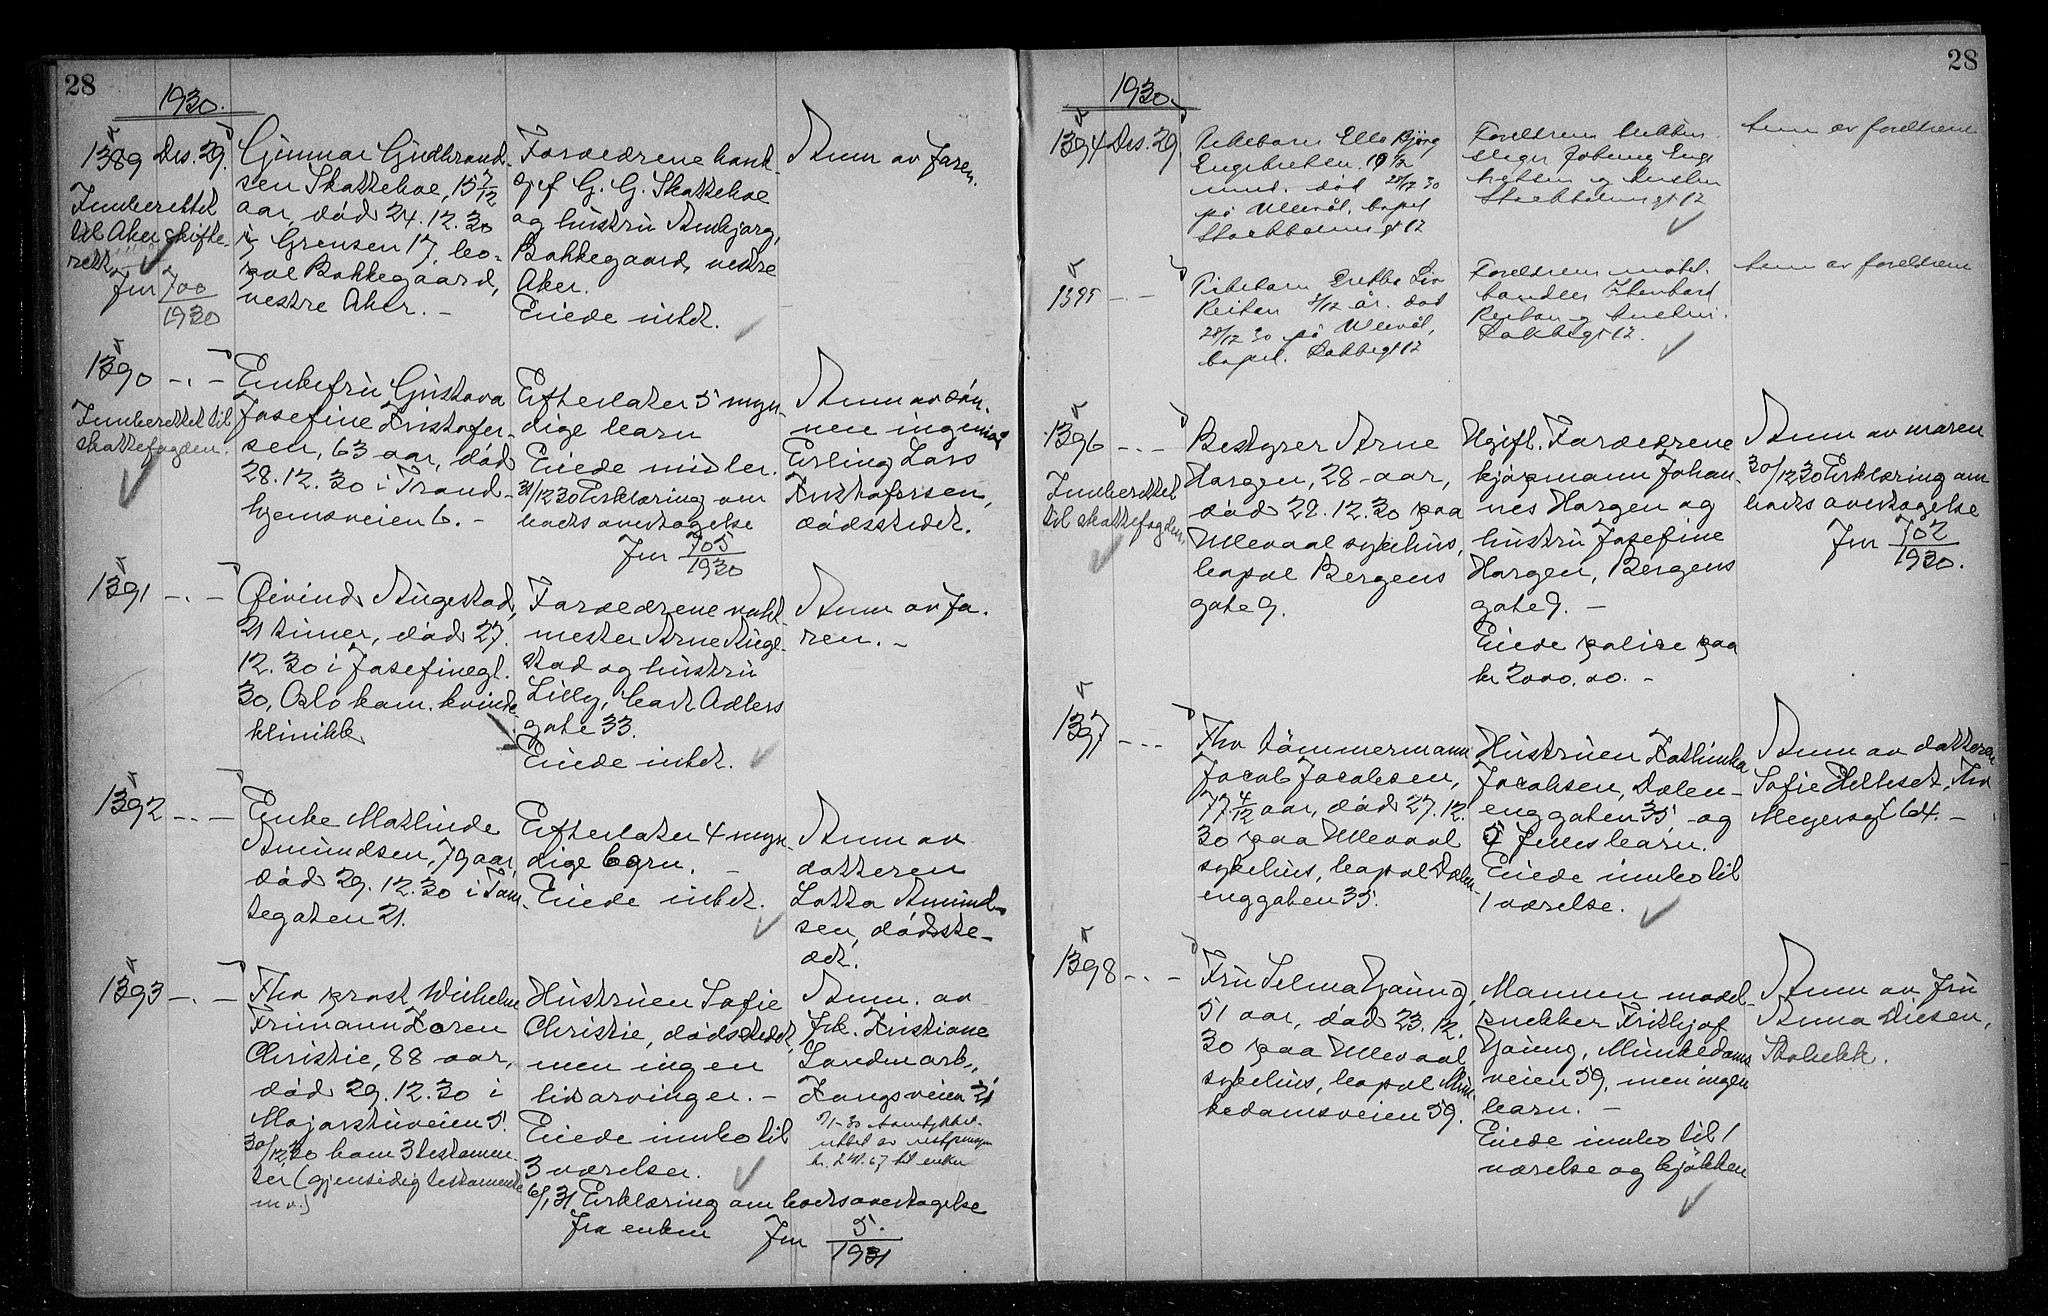 28
1930.
1389 Des. 29.
Innberettet
til Aker skifte-
rett
Jnr 700
1930
Gunnar Gudbrand-
sen Skatteboe, 15 7/12
aar, död 24.12.30
i Grensen 17, bo-
pæl Bakkegaard,
vestre Aker. -
Forældrene bank-
og G. G. Skatteboe
og hustru Annbjørg,
Bakkegaard, vestre
Aker.
Eiede intet.
Anm av faren.
1390 - " -
Innberettet til
skattefogden.
Enkefru Gustava
Josefine Kristofer-
sen, 63 aar, död
28.12.30 i Trond-
hjemsveien 6. -
Efterlater 5 myn-
dige barn
Eiede midler.
31/12 30 Erklæring om
boets overtagelse
Jnr 705
1930
Anm av søn-
nen ingeniør
Erling Lars
Kristofersen,
dödsstedet.
1391 - " -
Øivind Augestad,
21 timer, död 27.
12.30 i Josefinegt.
30, Oslo kom. kvinde-
klinikk
Forældrene vakt-
mester Arne Auge-
stad og hustru
Lilly, Cort Adlers
gate 33.
Eiede intet.
Anm av fa-
ren. -
1392 - " -
Enke Mathinde
Amundsen, 79 aar,
död 29.12.30 i Tom-
tegaten 21.
Efterlater 4 myn-
dige barn. -
Eiede intet.
Anm av
datteren
Lotta Amund-
sen, dödsste-
det.
1393 - " -
Fhv prost Wilhelm
Frimann Koren
Christie, 88 aar,
död 29.12.30 i
Majorstuveien 5.
30/12 30 kom 3 testamen-
ter (gjensidig testamente
m.v.)
Hustruen Sofie
Christie, dödsstedet,
men ingen
livsarvinger. -
Eiede innbo til
3 værelser.
6/1 31 Erklæring om boets overtagelse
fra enken Jnr 5.
1931
Anm. av
frk. Kristiane
Landmark,
Kongsveien 21
kr. 241.67 til enken
28
1930.
1394 Des. 29.
Pikebarn Ella Bjørg
Engebretsen. 10 1/2
mnd. död 28/12 30
på Ullevål, bopel
Stockholmsgt 12
Foreldrene
Johnny Enge
bretsen og hustru
Stockholmsgt 12
Anm av foreldrene
1395 - " -
Pikebarn Gretha Liv
Reitan 5/12 år. död
28/12 30 på Ullevål,
bopel. Dahlsgt 12
Foreldrene møbel-
handler
Reitan og hustru.
Anm av foreldrene
1396 - " -
Innberettet
til skattefogden.
Bestyrer Arne
Horgen, 28 aar,
död 28.12.30 paa
Ullevaal sykehus,
bopæl Bergens
gate 9.
Ugift. Forældrene
kjøpmann Johan-
nes Horgen og
hustru Josefine
Horgen, Bergens
gate 9. -
Eiede polise paa
kr 2000.00. -
Anm av moren
30/12 30 Erklæring om
boets overtagelse
Jnr 702
1930.
1397 - " -
Fhv tömmermann
Jacob Jacobsen,
77 4/12 aar, död 27.12.
30 paa Ullevaal
sykehus, bopæl Dælen-
enggaten 35.
Hustruen Kathinka
Jacobsen, Dælen-
enggaten 35 og
5 felles barn.
Eiede innbo til
1 værelse.
Anm av datteren
Sofie Helleset, Thv
Meyersgt 64. -
1398 - " -
Fru Selma Gaung,
51 aar, död 23.12.
30 paa Ullevaal
sykehus, bopæl Mun-
kedamsveien 59.
Mannen model-
snekker Fridtjof
Gaung, Munkedams
veien 59, men ingen
barn. -
Eiede innbo til 1
værelse og kjøkken
Anm av fru
Anna Diesen,
Stabekk.